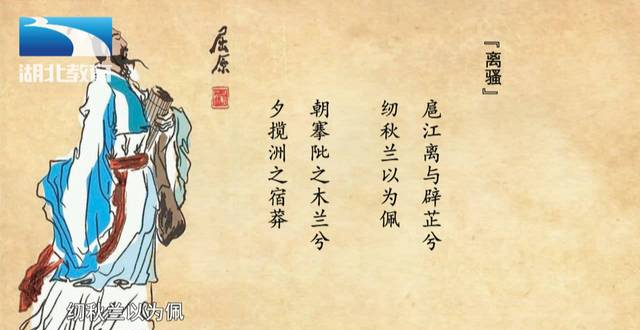 湖北教育
『离骚』
扈江离与辟芷兮
纫秋兰以为佩
朝搴阰之木兰兮
夕揽洲之宿莽
屈原
纫秋兰以为佩